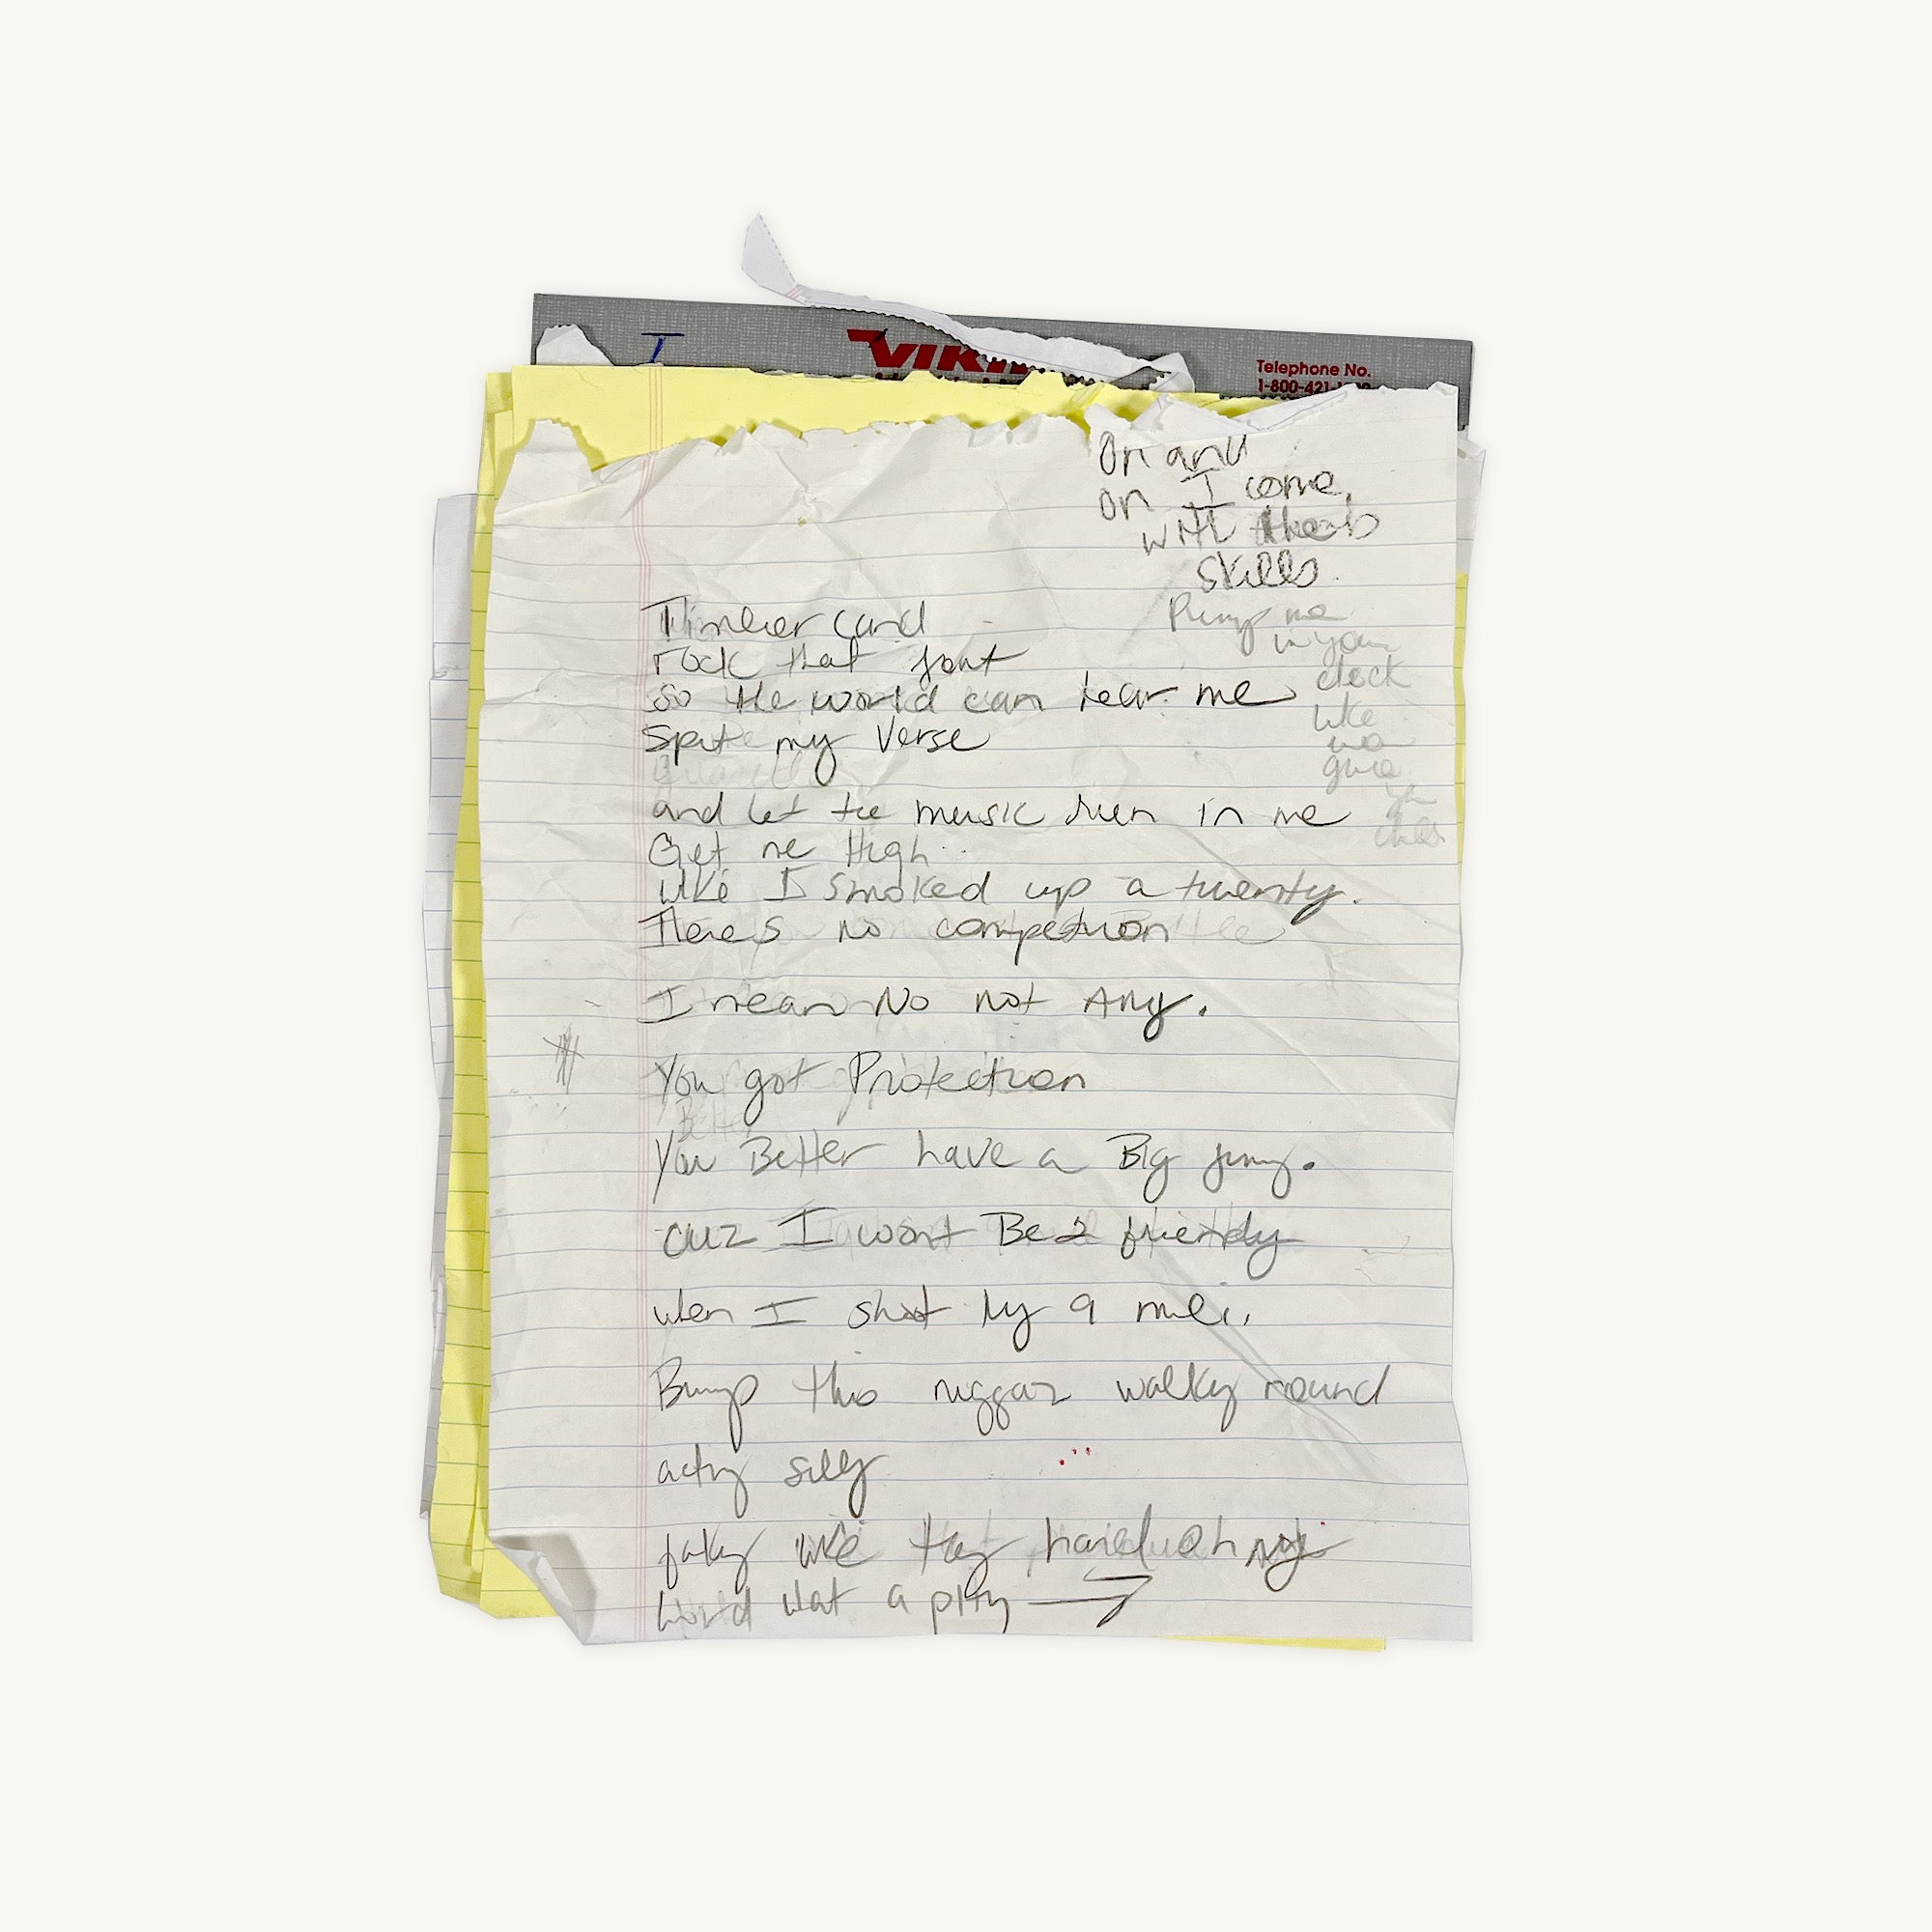 I
VIKI
Telephone No.
1-800-421-1
On and
on I come,
with these
skills.
Pump me
in your
deck
like
gue
Timberland
rock that jont
so the world can hear me
Spit my Verse
and let the music run in me
Get me High
like I smoked up a twenty.
Theres no competition
I mean No not Any.
You got Protection
Better
You Better have a Big jimmy.
cuz I wont Be 2 friendly
when I shoot my 9 mili,
Bump this niggaz walky round
acting silly
faky like they hard oh my
world what a pity →